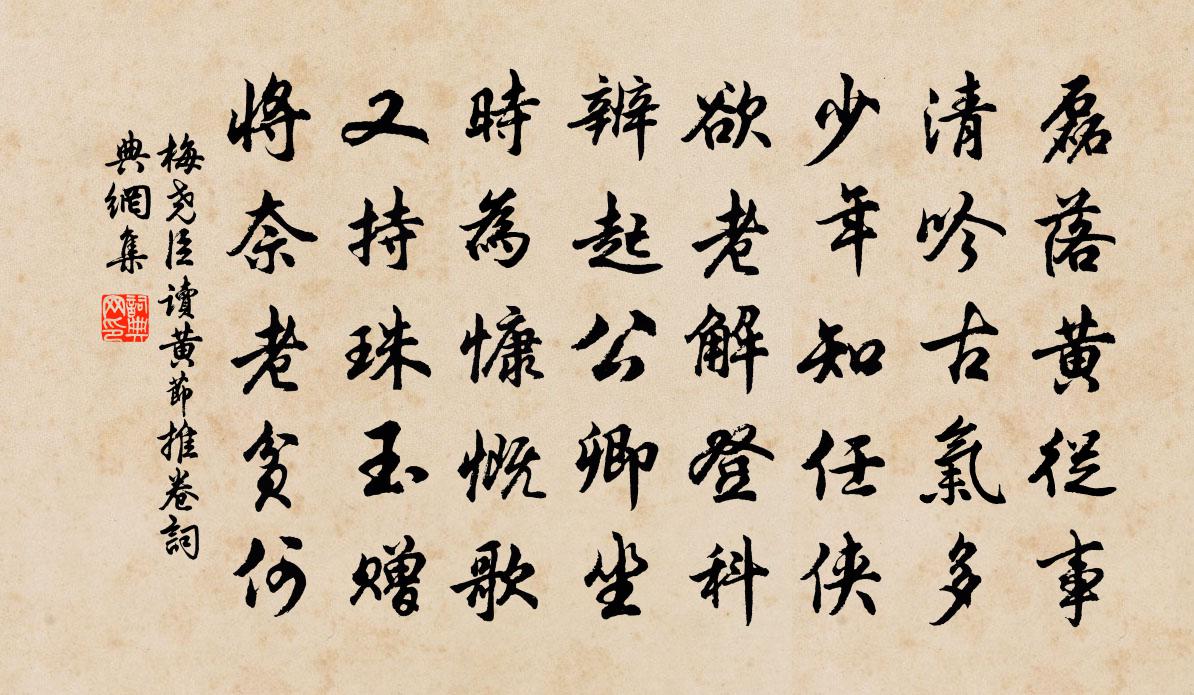 磊落黃從事
清吟古氣多
少年知任俠
欲老解登科
辨起公卿坐
時為慷慨歌
又持珠玉贈
將奈老貧何
梅堯臣讀黃節推卷詞
典網集
詞典
网印